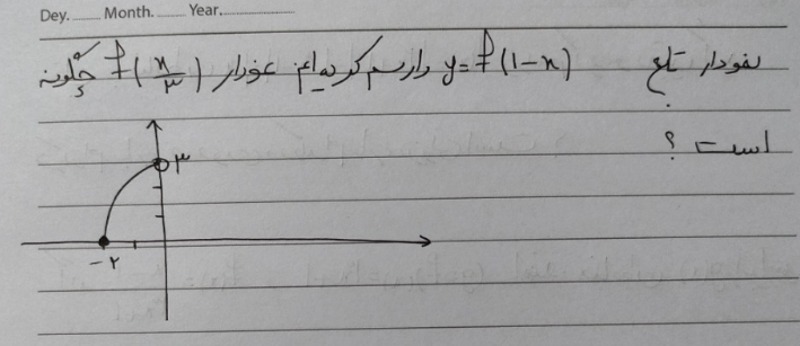 Dey. Month. Year.
نمودار تابع y=f(1-x) را رسم کرده‌ایم نمودار f(x/۳) چگونه
است ؟
۳
-۲